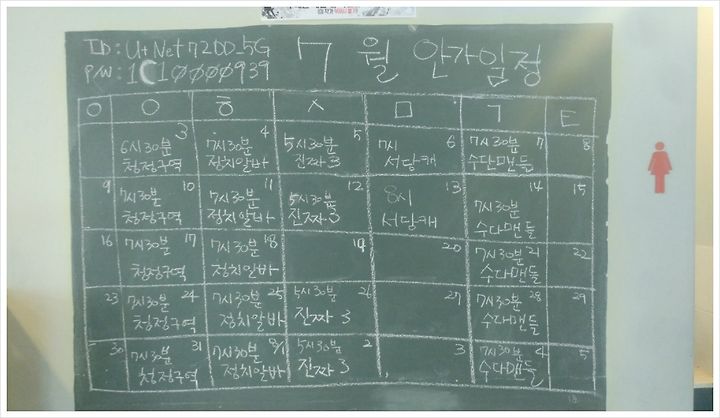 ID: U+Net7200_5G
P/W: 1C10000939
7월 안가일정
ㅇ ㅇ ㅎ ㅅ ㅁ ㄱ ㅌ
3 4 5 6 7 8
6시30분 7시30분 5시30분 7시 7시30분
청정구역 정치알바 진짜3 서당캐 수다맨들
9 10 11 12 13 14 15
7시30분 7시30분 5시30분 8시 7시30분
청정구역 정치알바 진짜3 서당캐 수다맨들
16 17 18 19 20 21 22
7시30분 7시30분 7시30분
청정구역 정치알바 수다맨들
23 24 25 26 27 28 29
7시30분 7시30분 5시30분 7시30분
청정구역 정치알바 진짜3 수다맨들
30 31 8/1 2 3 4 5
7시30분 7시30분 5시30분 7시30분
청정구역 정치알바 진짜3 수다맨들